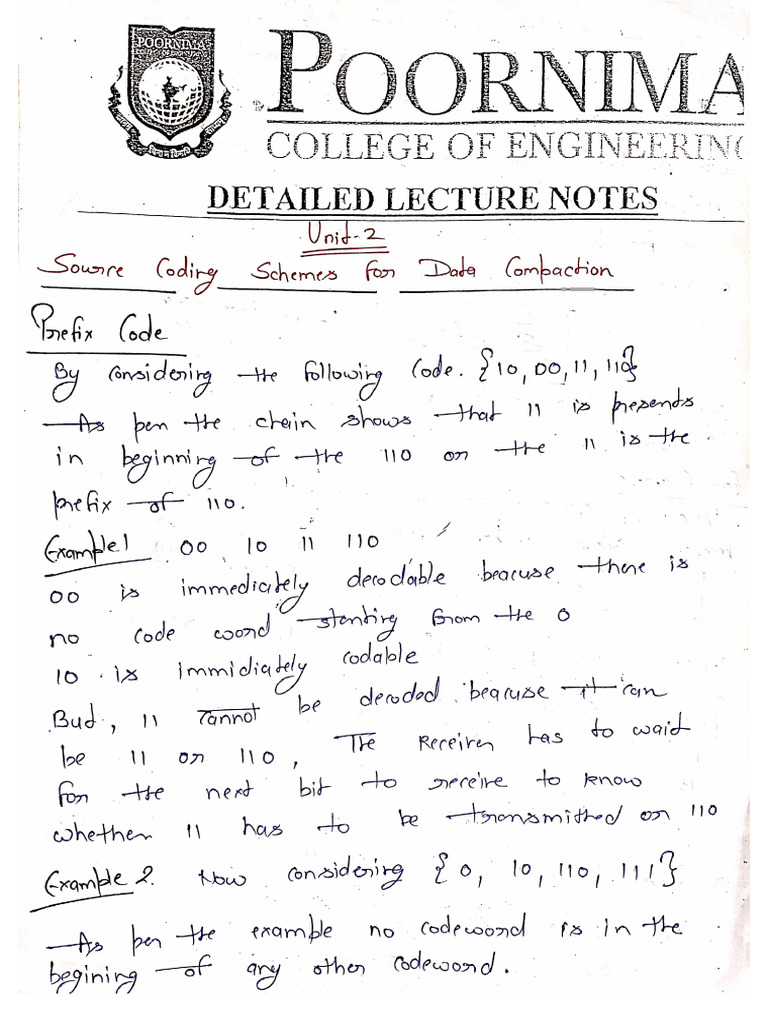 POORNIMA
POORNIMA
COLLEGE OF ENGINEERING
DETAILED LECTURE NOTES
Unit-2
Source Coding Schemes for Data Compaction
Prefix Code
By considering the following Code. {10, 00, 11, 110}
As per the chain shows that 11 is presents
in beginning of the 110 or the 11 is the
prefix of 110.
Example 1 00 10 11 110
00 is immediately decodable beacuse there is
no code word starting from the 0
10 is immidiately codable
But, 11 cannot be decoded beacuse it can
be 11 or 110, The Receiver has to wait
for the next bit to receive to know
whether 11 has to be transmitted or 110
Example 2. Now considering {0, 10, 110, 111}
As per the example no codeword is in the
begining of any other codeword.